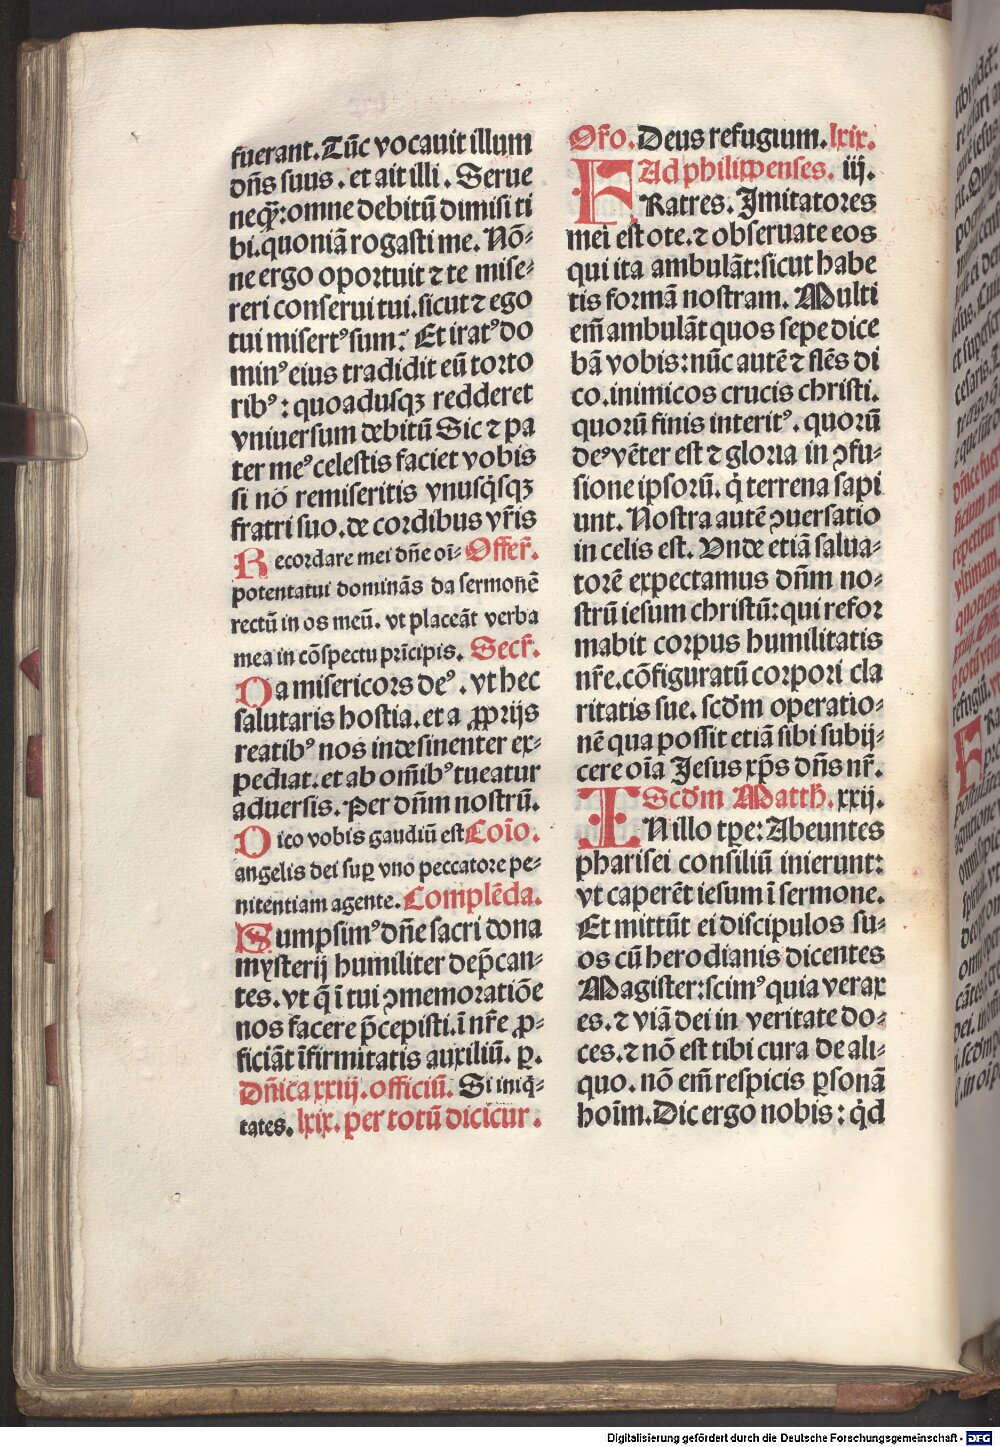 fuerant. Tūc vocauit illum
dn̄s suus. et ait illi. Serue
neq̄ꝫ: omne debitū dimisi ti
bi. quoniā rogasti me. Nō⸗
ne ergo oportuit ⁊ te mise⸗
reri conserui tui. sicut ⁊ ego
tui misertꝰ sum: Et iratꝰ do
minꝰ eius tradidit eū torto
ribꝰ: quoadusqꝫ redderet
vniuersum debitū Sic ⁊ pa
ter meꝰ celestis faciet vobis
si nō remiseritis vnusq̇sqꝫ
fratri suo. de cordibus vr̄is
Recordare mei dn̄e oī⸗ Offer̄.
potentatui dominās da sermonē
rectū in os meū. vt placeāt verba
mea in cōspectu prīcipis. Secr̄.
Da misericors deꝰ. vt hec
salutaris hostia. et a ꝓprijs
reatibꝰ nos indesinenter ex⸗
pediat. et ab om̄ibꝰ tueatur
aduersis. Per dn̄m nostrū.
Dico vobis gaudiū est Coīo.
angelis dei suꝑ vno peccatore pe⸗
nitentiam agente. Complēda.
Sumpsimꝰ dn̄e sacri dona
mysterij humiliter dep̄can⸗
tes. vt q̄ ī tui ꝯmemoratiōe
nos facere p̄cepisti. ī nr̄e ꝓ⸗
ficiāt īfirmitatis auxiliū. ꝑ.
Dn̄ica xxiij. officiū. Si iniq̄⸗
tates. lxix. per totū dicicur.
Or̄o. Deus refugium. lxix.
Ad philippenses. iij.
FRatres. Imitatores
mei estote. ⁊ obseruate eos
qui ita ambulāt: sicut habe
tis formā nostram. Multi
em̄ ambulāt quos sepe dice
bā vobis: nūc autē ⁊ flēs di
co. inimicos crucis christi.
quorū finis interitꝰ. quorū
deꝰ vēter est ⁊ gloria in ꝯfu⸗
sione ipsorū. q̇ terrena sapi
unt. Nostra autē ꝯuersatio
in celis est. Vnde etiā salua⸗
torē expectamus dn̄m no⸗
strū iesum christū: qui refor
mabit corpus humilitatis
nr̄e. cōfiguratū corpori cla
ritatis sue. scd̄m operatio⸗
nē qua possit etiā sibi subij⸗
cere oīa Jesus xp̄s dn̄s nr̄.
Scd̄m Matth. xxij.
IN illo tp̄e: Abeuntes
pharisei consiliū inierunt:
vt caperēt iesum ī sermone.
Et mittūt ei discipulos su⸗
os cū herodianis dicentes
Magister: scimꝰ quia verax
es. ⁊ viā dei in veritate do⸗
ces. ⁊ nō est tibi cura de ali⸗
quo. nō em̄ respicis ꝑsonā
hoīm. Dic ergo nobis: q̇d
Digitalisierung gefördert durch die Deutsche Forschungsgemeinschaft - DFG